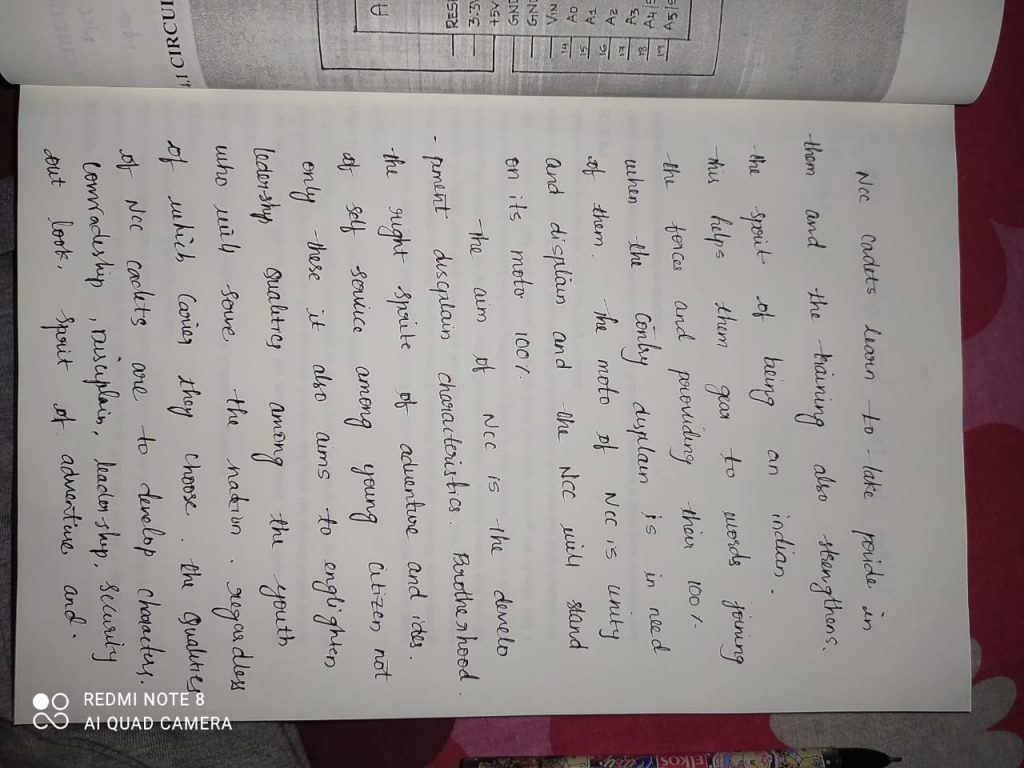 Ncc cadets learn to take pouide in
them and the training also strengthens.
the spirit of being an indian.
this helps them gear to words joining
the forces and providing their 100%
when the Conby displain is in need
of them. The moto of Ncc is unity
and displain and the Ncc will stand
on its moto 100%
the aim of Ncc is the develo
-pment discplain characteristics. Brotherhood.
the right sprite of adventure and ides.
of self service among young citizen not
only these it also aims to englighten
leadership Qualities among the youth
who will serve the nation. regardless
of which carier they choose. the Qualities
of Ncc cadets are to develop characters.
comradeship, Disciplain, leadership, security
out look, spirit of adventure and.
CIRCUI
RES
REDMI NOTE 8
AI QUAD CAMERA
elkos